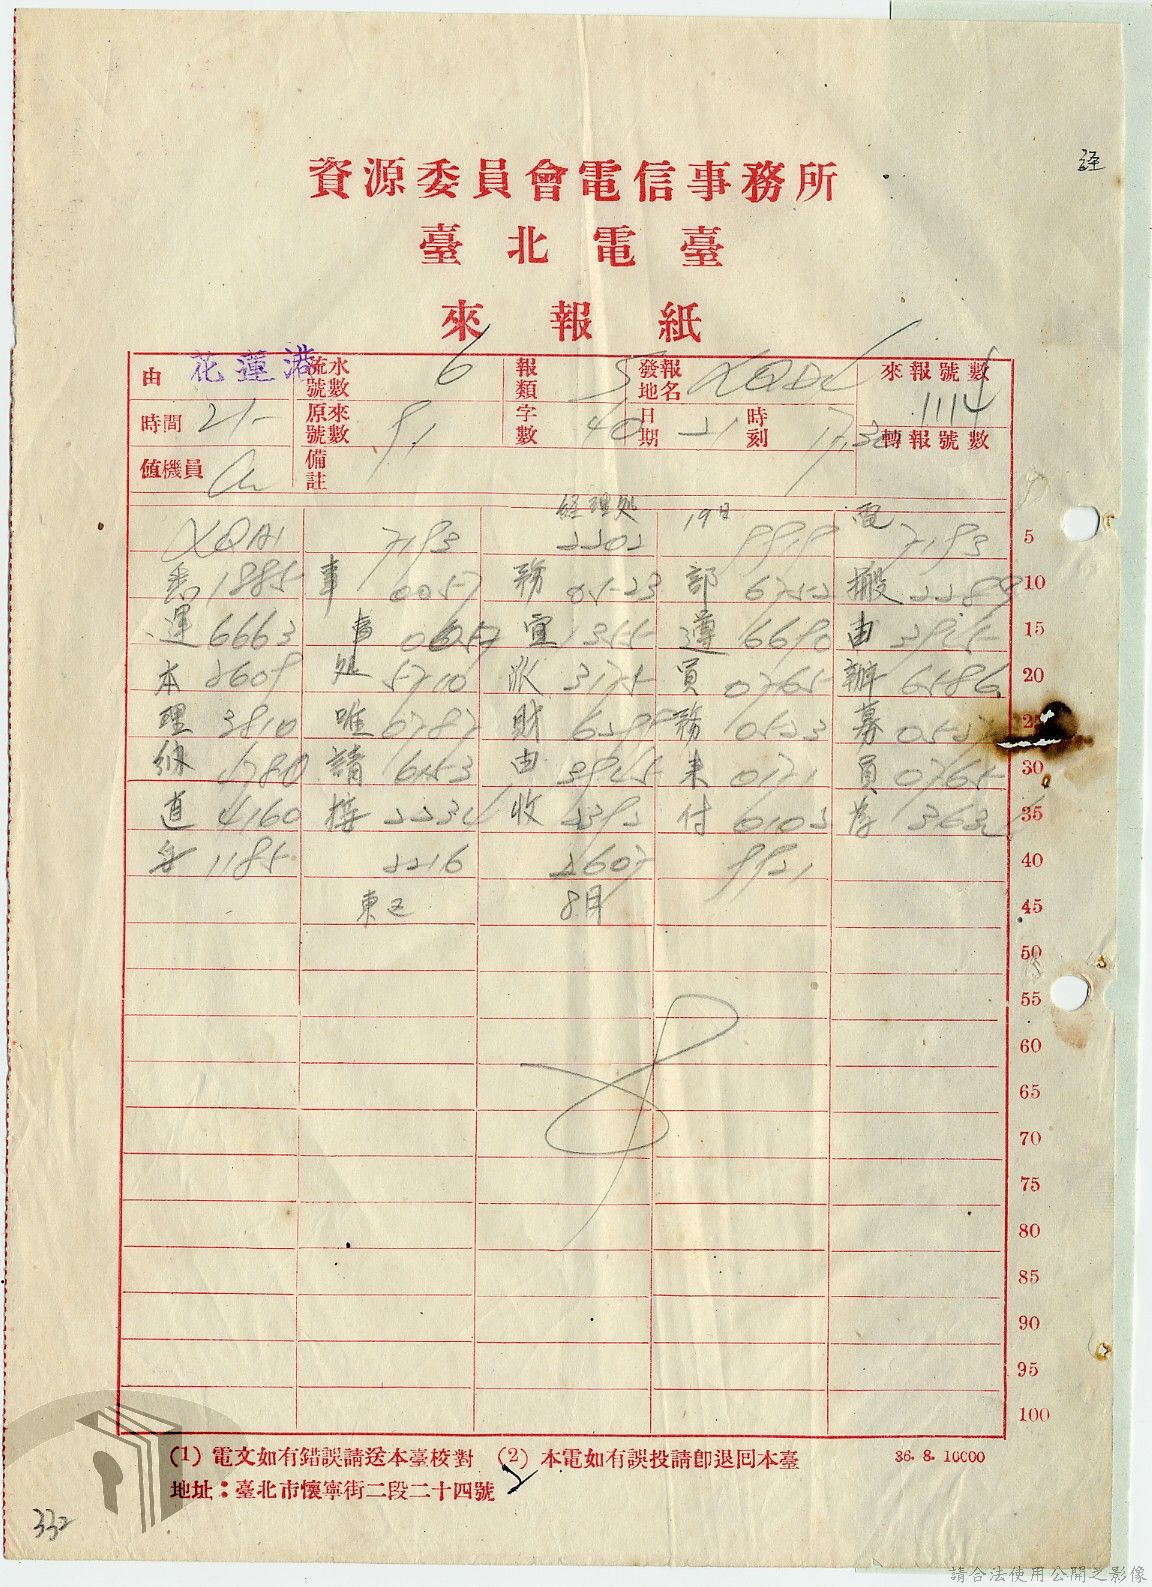 資源委員會電信事務所
臺北電臺
來報紙
由 花蓮港 流水號數 6 報類 5 發報地名 XQDL 來報號數 1114
時間 21- 原來號數 91 字數 40 日期 21 時刻 17.30 轉報號數
值機員 備註
経理処 19日 電
XQAI 7193 2202 9919 7193 5
悉 1885 事 0057 務 0523 部 6752 搬 2289 10
運 6663 事 0057 宜 1355 遵 6690 由 3945 15
本 2609 処 5710 派 3175 員 0765 辦 6586 20
理 3810 唯 0787 財 6299 務 0523 募 0527 25
納 4780 請 6153 由 3945 来 0171 員 0765 30
道 4160 接 2234 收 2392 付 0102 為 3634 35
1185 2216 2607 9921 40
東 8月 45
50
55
60
65
70
75
80
85
90
95
100
(1) 電文如有錯誤請送本臺校對 (2) 本電如有誤投請卽退回本臺 36. 8. 10000
地址：臺北市懷寧街二段二十四號
332
請合法使用公開之影像